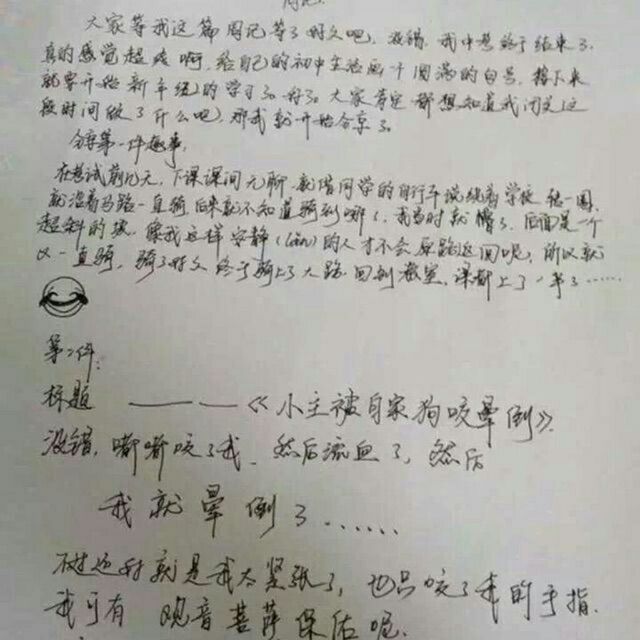 周记
大家等我这篇周记等了好久吧,没错,我中考终于结束了,
真的感觉超爽啊,给自己的初中生活画个圆满的句号,接下来
就要开始新年级的学习了。好了,大家肯定都想知道我闭关这
段时间做了什么吧,那我就开始分享了。
分享第一件趣事,
在考试前几天,下课课间无聊,就借同学的自行车说绕着学校转一圈,
就沿着马路一直骑,后来就不知道骑到哪了,我当时就懵了,后面是一个
超斜的坡,像我这样安静(lǎn)的人才不会原路返回呢,所以就
又一直骑,骑了好久终于骑上了大路。回到教室,课都上了一半了……
第二件:
标题 ———《小主被自家狗咬晕倒》
没错,嘟嘟咬了我,然后流血了,然后
我就晕倒了……
不过还好就是我太紧张了,也只咬了我的手指.
我可有观音菩萨保佑呢.